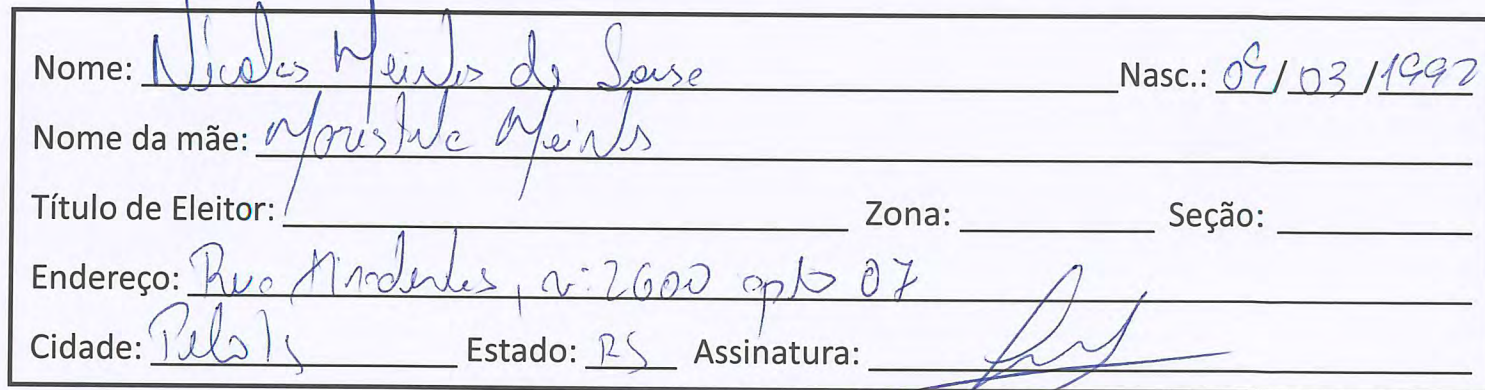 Nome: Nicolas Meireles de Souse Nasc.: 09/03/1992
Nome da mãe: Meireles
Título de Eleitor: Zona: Seção:
Endereço: Rua Tiradentes, nº 2600 apto 07
Cidade: Pelotas Estado: RS Assinatura: